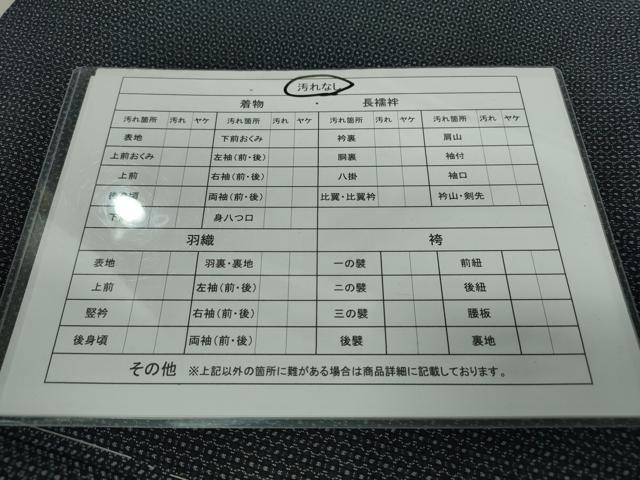 汚れなし
着物 ・ 長襦袢
汚れ箇所 汚れ ヤケ 汚れ箇所 汚れ ヤケ 汚れ箇所 汚れ ヤケ 汚れ箇所 汚れ ヤケ
表地 下前おくみ 衿裏 肩山
上前おくみ 左袖(前・後) 胴裏 袖付
上前 右袖(前・後) 八掛 袖口
後身頃 両袖(前・後) 比翼・比翼衿 衿山・剣先
下 身八つ口
羽織 袴
表地 羽裏・裏地 一の襞 前紐
上前 左袖(前・後) 二の襞 後紐
竪衿 右袖(前・後) 三の襞 腰板
後身頃 両袖(前・後) 後襞 裏地
その他 ※上記以外の箇所に難がある場合は商品詳細に記載しております。